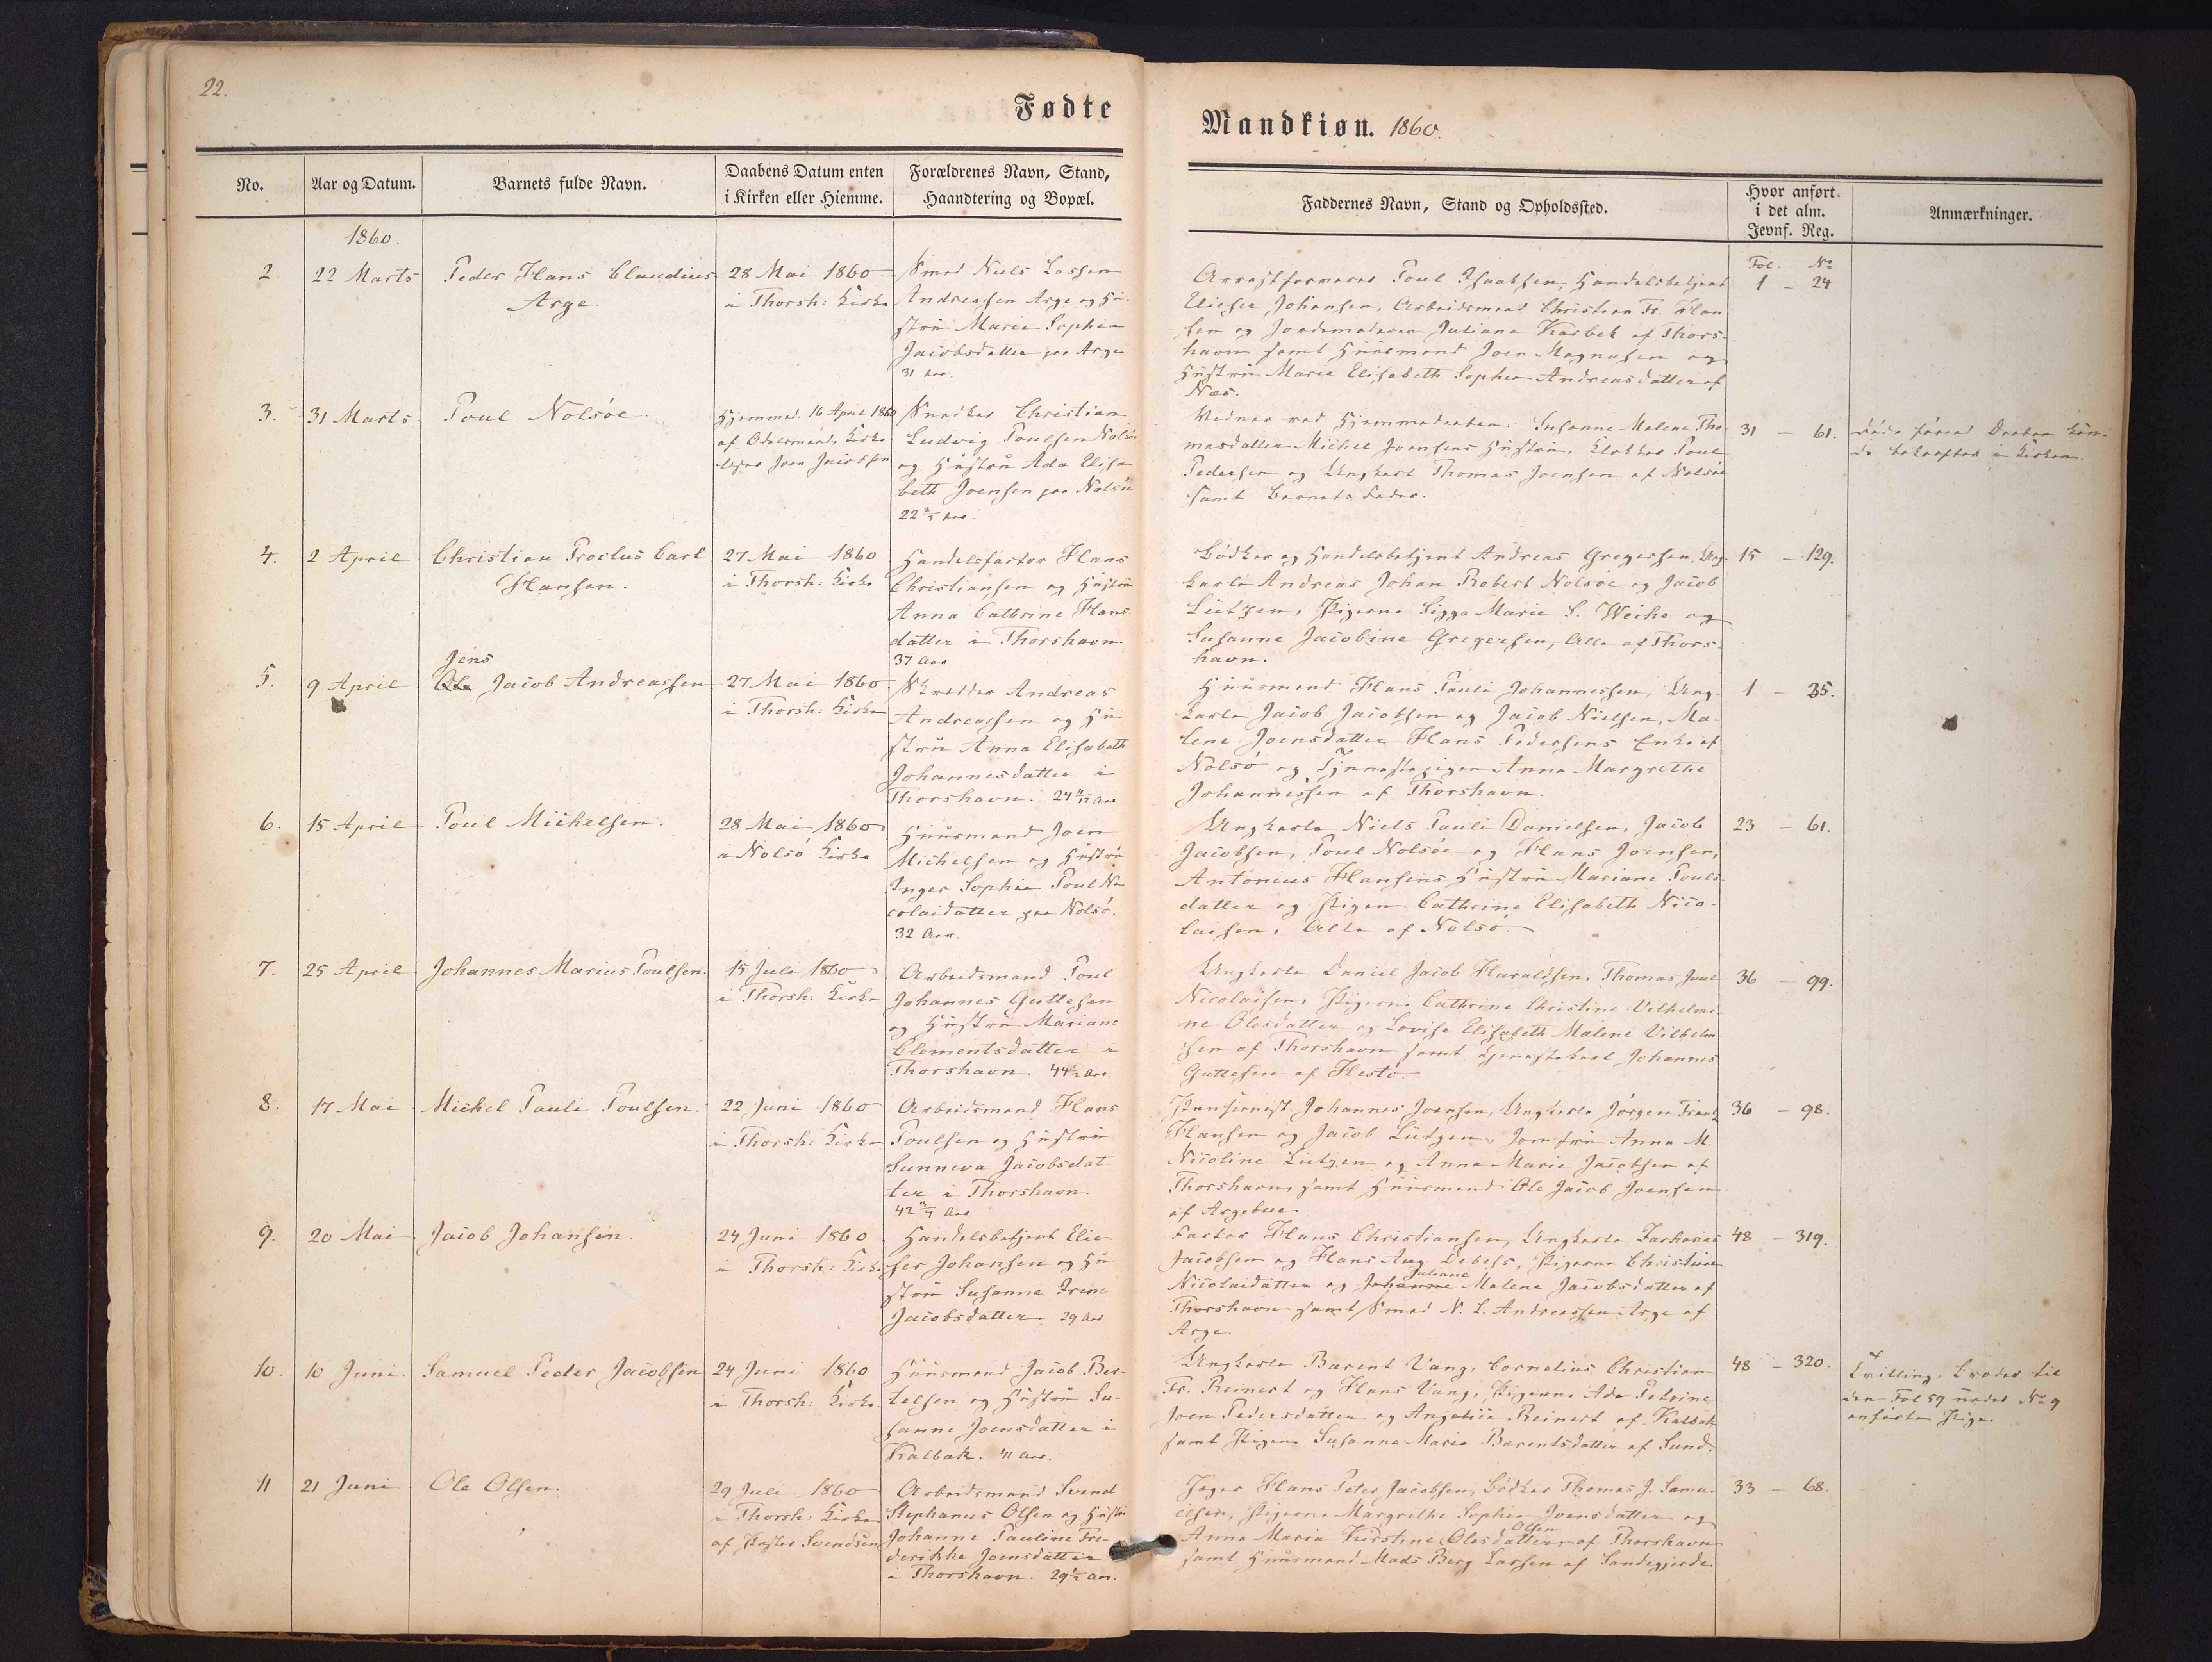 22.
Fødte
No.
Aar og Datum.
Barnets fulde Navn.
Daabens Datum enten
i Kirken eller Hiemme.
Forældrenes Navn, Stand,
Haandtering og Bopæl.
1860.
2
22 Marts
Peder Hans Claudius
Arge.
28 Mai 1860
i Thorsh: Kirke
Smed Niels Lassen
Andreassen Arge og Hu-
stru Marie Sophie
Jacobsdatter paa Arge
31 Aar.
3.
31 Marts
Poul Nolsöe
Hjemmed. 16 April 1860
af Kirke
Joen Jacobsen
Snedker Christian
Ludvig Poulsen Nolsöe
og Hustru Ada Elisa-
beth Joensen paa Nolsöe
22 Aar.
4.
2 April
Christian Proclus Carl
Hansen.
27 Mai 1860
i Thorsh: Kirke
Handelsfactor Hans
Christiansen og Hustru
Anna Cathrine Hans-
datter i Thorshavn.
37 Aar
5.
9 April
Jens
Ole Jacob Andreassen
27 Mai 1860
i Thorsh: Kirke
Skrædder Andreas
Andreassen og Hu-
stru Anna Elisabeth
Johannesdatter i
Thorshavn. 24 Aar
6.
15 April
Poul Michelsen.
28 Mai 1860
i Nolsö Kirke
Huusmand Joen
Michelsen og Hustru
Inger Sophie Poul Ni-
colaidatter paa Nolsö.
32 Aar.
7.
25 April
Johannes Marius Poulsen.
15 Juli 1860
i Thorsh: Kirke
Arbeidsmand Poul
Johannes Guttesen
og Hustru Mariane
Clementsdatter i
Thorshavn. 44½ Aar.
8.
17 Mai
Michel Pauli Poulsen.
22 Juni 1860
i Thorsh: Kirke
Arbeidsmand Hans
Poulsen og Hustru
Sunneva Jacobsdat-
ter i Thorshavn.
42 ¾ Aar
9.
20 Mai
Jacob Johansen.
24 Juni 1860
i Thorsh: Kirke
Handelsbetjent Elie-
ser Johansen og Hu-
stru Susanne Irene
Jacobsdatter. 29 Aar
10.
10 Juni.
Samuel Peder Jacobsen
24 Juni 1860
i Thorsh: Kirke.
Huusmand Jacob Ber-
telsen og Hustru Su-
sanne Joensdatter i
Kalbak. 41 Aar.
11
21 Juni
Ole Olsen.
29 Juli 1860
i Thorsh: Kirke
af Pastor Svendsen
Arbeidsmand Svend
Stephanus Olsen og Hustru
Johanne Pauline Fre-
derikke Joensdatter
i Thorshavn. 29½ Aar.
Mandkiøn. 1860.
Faddernes Navn, Stand og Opholdssted.
Hvor anført.
i det alm.
Jevnf. Reg.
Anmærkninger.
Fol. No
Arrestforvarer Poul Isaaksen, Handelsbetjent
Elieser Johansen, Arbeidsmand Christian Fr. Han-
sen og Jordemoderen Juliane Karbek af Thors-
havn samt Huusmand Joen Magnusen og
Hustru Marie Elisabeth Sophie Andreasdatter af
Næs.
1 - 24
Vidner ved Hjemmedaaben: Susanne Malene Tho-
masdatter Michel Joensens Hustru, Klokker Poul
Pedersen og Ungkarl Thomas Joensen af Nolsöe
samt Barnets Fader.
31 - 61.
Döde förend Daaben kun-
de bekræftes i Kirken.
Bödker og Handelsbetjent Andreas Gregersen, Ung-
karle Andreas Johan Robert Nolsöe og Jacob
Lützen, Pigerne Sigga Marie S. Weihe og
Susanne Jacobine Gregersen, Alle af Thors-
havn.
15 - 129.
Huusmand Hans Pauli Johannessen, Ung-
karle Jacob Jacobsen og Jacob Nielsen, Ma-
lene Joensdatter Hans Pedersens Enke af
Nolsö og Tjenestepigen Anna Margrethe
Johannessen af Thorshavn.
1 - 35.
Ungkarle Niels Pauli Danielsen, Jacob
Jacobsen, Poul Nolsöe og Hans Joensen,
Antonius Hansens Hustru Mariane Pouls-
datter og Pigen Cathrine Elisabeth Nico-
laisen, Alle af Nolsö.
23 - 61.
Ungkarle Daniel Jacob Haraldsen, Thomas Juul
Nicolaisen, Pigerne Cathrine Christine Vilhelmi-
ne Olesdatter og Lovise Elisabeth Malene Vilhelm-
sen af Thorshavn samt Tjenestekarl Johannes
Guttesen af Hestö.
36 - 99.
Pensionist Johannes Joensen, Ungkarle Jörgen Frantz
Hansen og Jacob Lützen, Jomfru Anna M.
Nicoline Lützen og Anna Marie Jacobsen af
Thorshavn, samt Huusmand Ole Jacob Joensen
af Argebue.
36 - 98.
Factor Hans Christiansen, Ungkarle Zacharias
Jacobsen og Hans Aug. Debess, Pigerne Christine
Juliane
Nicolaidatter og Johanne Malene Jacobsdatter af
Thorshavn samt Smed N. L. Andreassen Arge af
Arge.
48 - 319.
Ungkarle Barent Vang, Cornelius Christian
Fr. Reinert og Hans Vang, Pigerne Ada Petrine
Joen Pedersdatter og Reinert af Kalbak
samt Pigen Susanne Marie Barentsdatter af Sund.
48 - 320.
Tvilling, Broder til
den Fol 57 under No 9
anförte Pige.
Jæger Hans Peter Jacobsen, Bödker Thomas J. Samu-
elsen, Pigerne Margrethe Sophie Joensdatter og
Olsen
Anna Marie Kirstine Olesdatter af Thorshavn
samt Huusmand Mads Berg Larsen af Sandegjerde.
33 - 68.